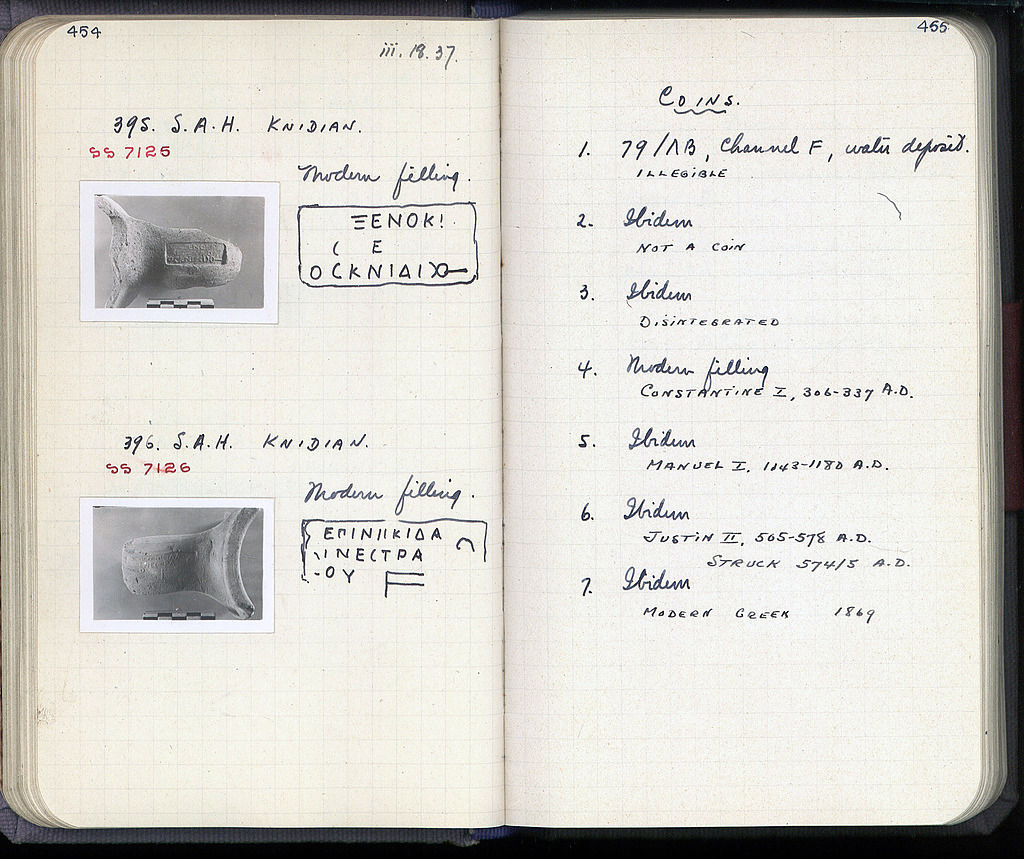 454
iii. 18. 37.
395. S.A.H. KNIDIAN.
SS 7125
Modern filling.
ΞΕΝΟΚ!
( Ε
ΟϹΚΝΙΔΙ
396. S.A.H. KNIDIAN.
SS 7126
Modern filling.
ΕΠΙΝΙΙΚΙΔΑ
ΙΝΕϹΤΡΑ
-ΟΥ
455
COINS.
1. 79/ΛΒ, Channel F, water deposit.
ILLEGIBLE
2. Ibidem
NOT A COIN
3. Ibidem
DISINTEGRATED
4. Modern filling
CONSTANTINE I, 306-337 A.D.
5. Ibidem
MANUEL I, 1143-1180 A.D.
6. Ibidem
JUSTIN II, 565-578 A.D.
STRUCK 574/5 A.D.
7. Ibidem
MODERN GREEK 1869